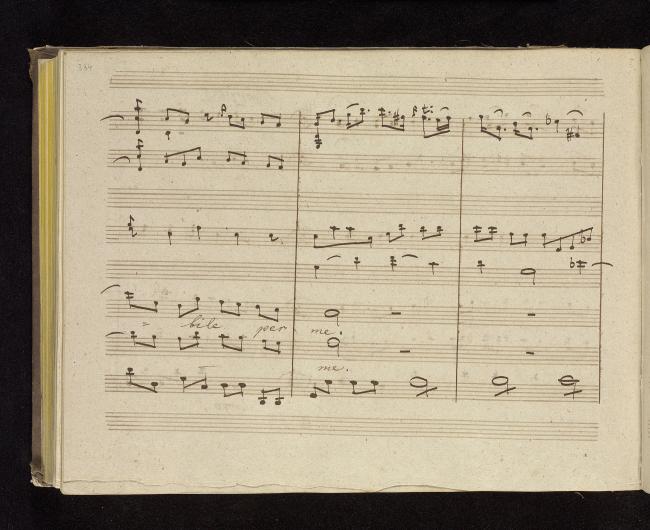 334
= bile per me.
me.